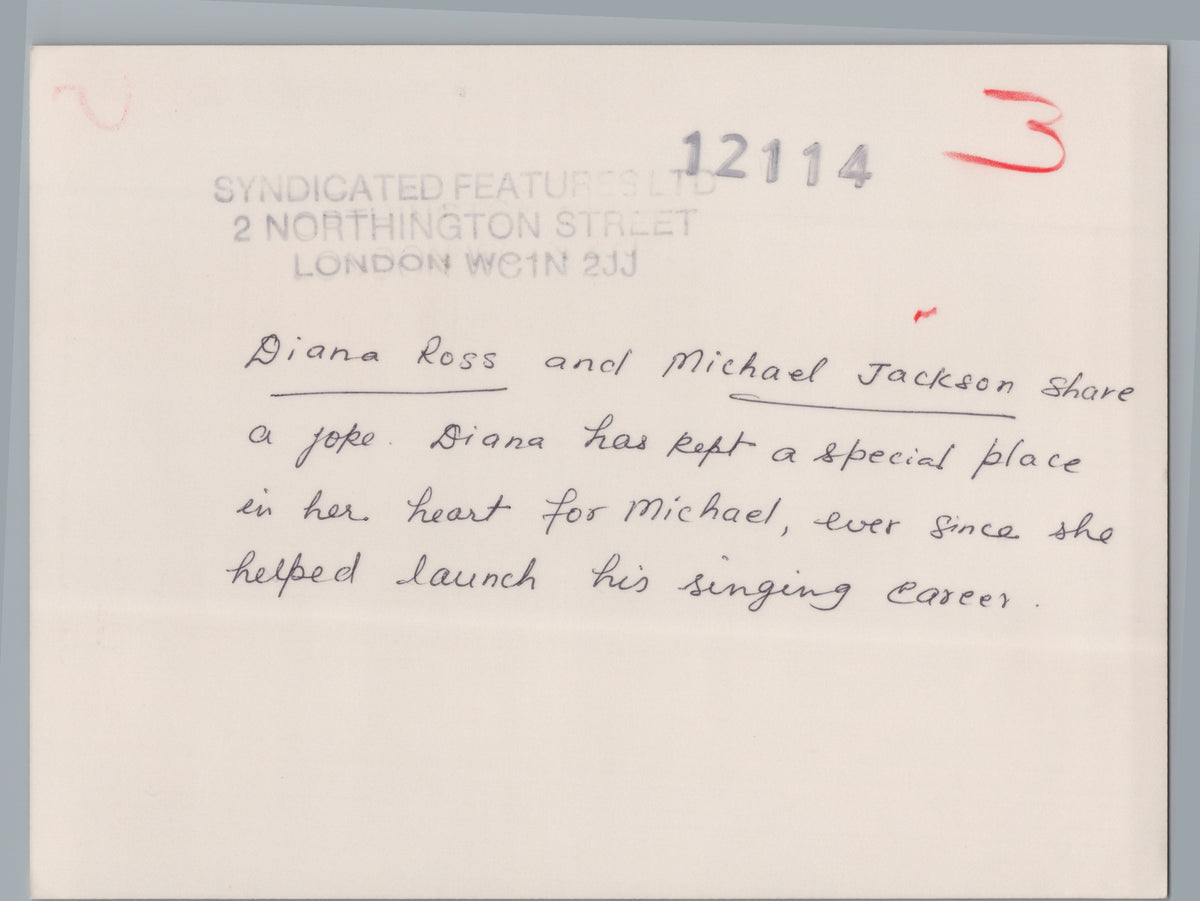 3
12114
SYNDICATED FEATURES LTD
2 NORTHINGTON STREET
LONDON WC1N 2JJ
Diana Ross and Michael Jackson share
a joke. Diana has kept a special place
in her heart for Michael, ever since she
helped launch his singing career.